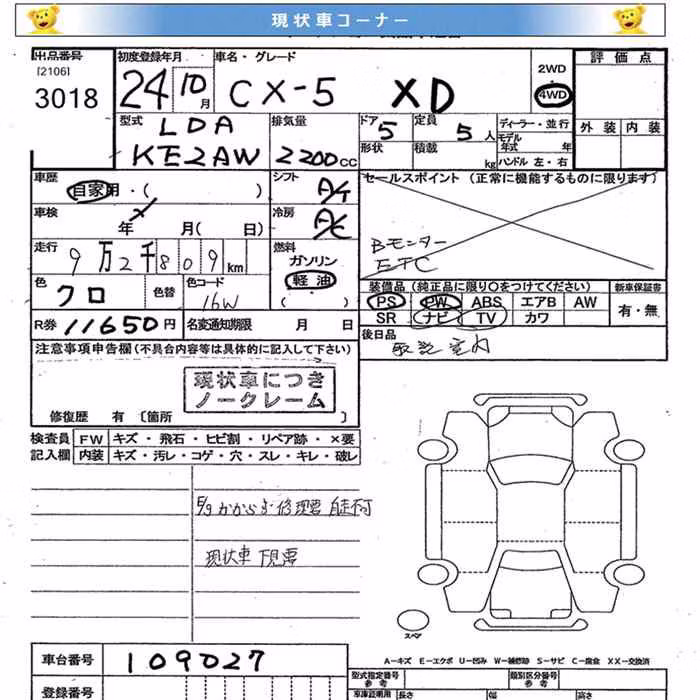 現状車コーナー
出品番号 初度登録年月 車名・グレード 2WD 評価点
[2106]
3018 24 10月 CX-5 XD 4WD
型式 排気量 ドア 定員 ディーラー・並行 外装 内装
LDA 5 5人 モデル年式 年
KE2AW 2200cc 形状 積載 kg ハンドル 左・右
車歴 シフト セールスポイント (正常に機能するものに限ります)
自家用・( ) A/T
車検 冷房
年 月( 日) A/C Bモニター
ETC
走行 燃料
9万2千809km ガソリン
軽油
色 色替 色コード ( ) 装備品(純正品に限り○をつけてください) 新車保証書
クロ 16W PS PW ABS エアB AW 有・無
SR ナビ TV カワ
R券 11650円 名変通知期限 月 日 後日品
取説 室内
注意事項申告欄(不具合内容等は具体的に記入して下さい)
現状車につき
ノークレーム
修復歴 有 〔箇所 〕
検査員 FW キズ・飛石・ヒビ割・リペア跡・×要
記入欄 内装 キズ・汚レ・コゲ・穴・スレ・キレ・破レ
現状車 下見要
スペア
A-キズ E-エクボ U-凹み W-補修跡 S-サビ C-腐食 XX-交換済
車台番号 109027
型式指定番号 参考 類別区分番号 参考
登録番号 車庫証明用 長さ 幅 高さ